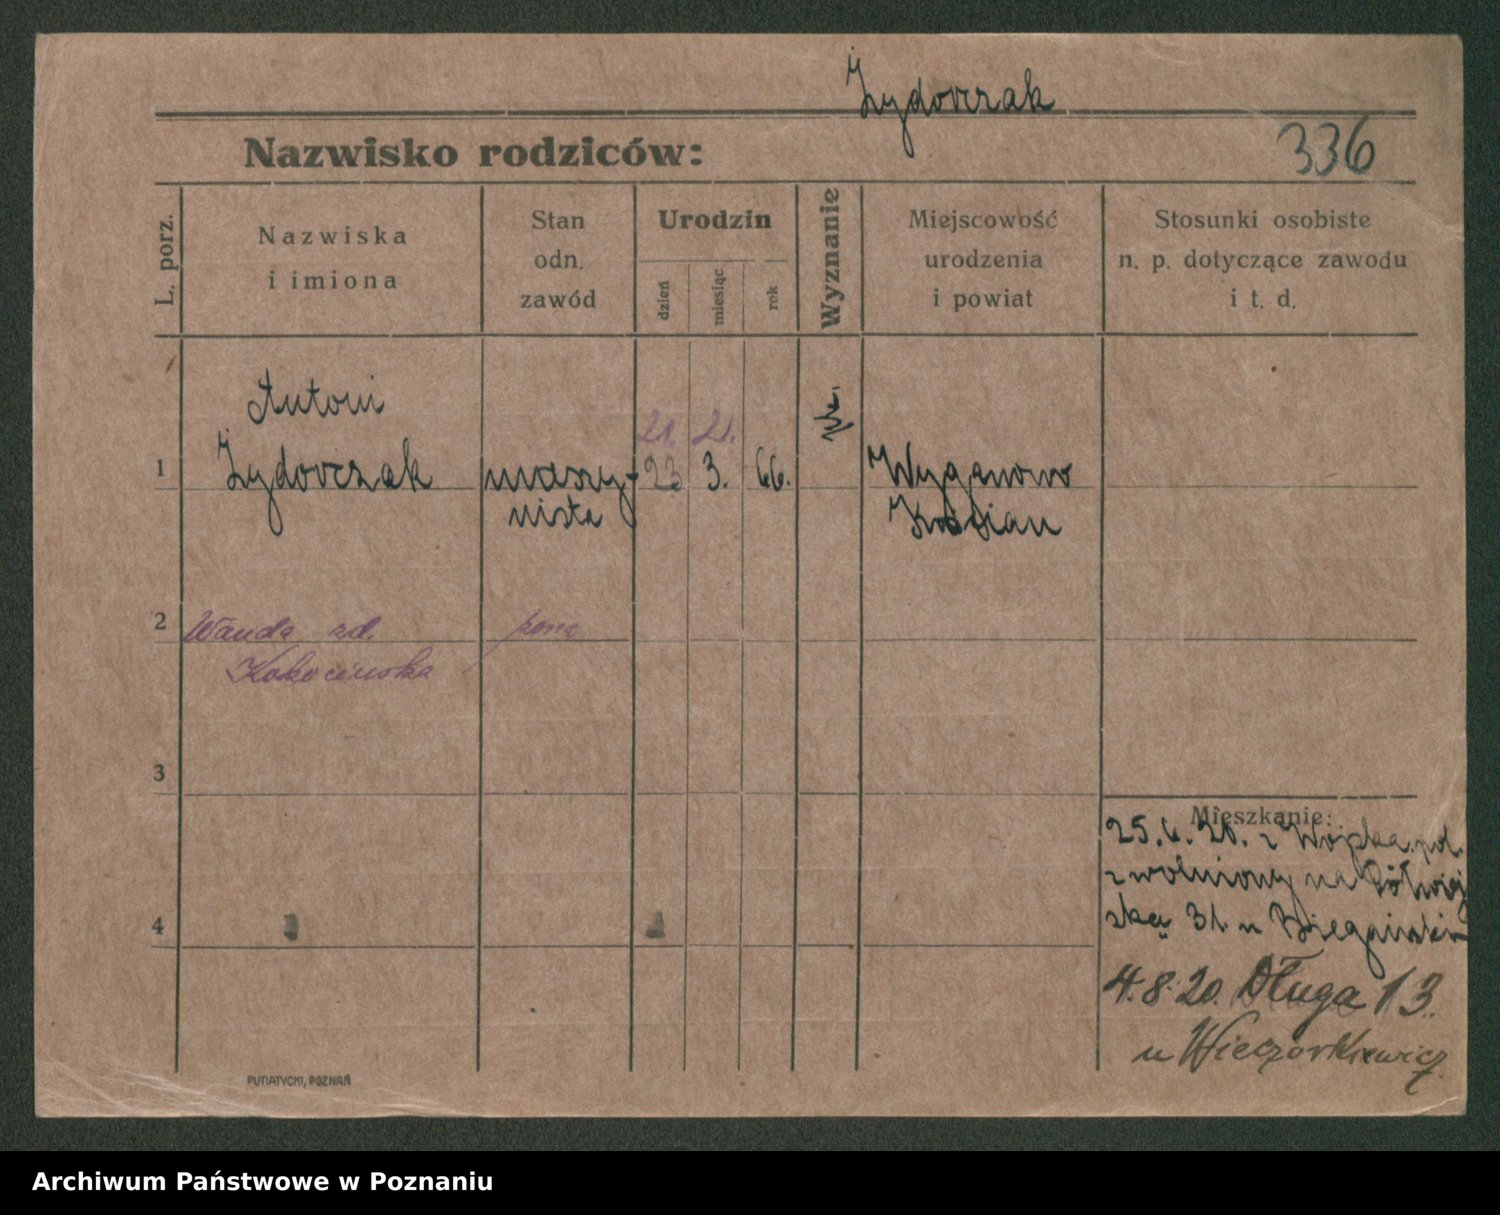 Żydowczak
Nazwisko rodziców:
336
L. porz.
Nazwiska
i imiona
Stan
odn.
zawód
Urodzin
dzień
miesiąc
rok
Wyznanie
Miejscowość
urodzenia
i powiat
Stosunki osobiste
n. p. dotyczące zawodu
i t. d.
Antoni
21. 21.
1 Żydowczak maszy- 23 3. 66. Wyganowo
nista Kościan
2 Wanda zd. żona
Kokocińska
3
Mieszkanie:
25.6.20. z Wojska pol.
zwolniony na Półwiej
ską 31. u
4
4.8.20. Długa 13.
u Wieczorkiewicz.
PUTIATYCKI, POZNAŃ
Archiwum Państwowe w Poznaniu